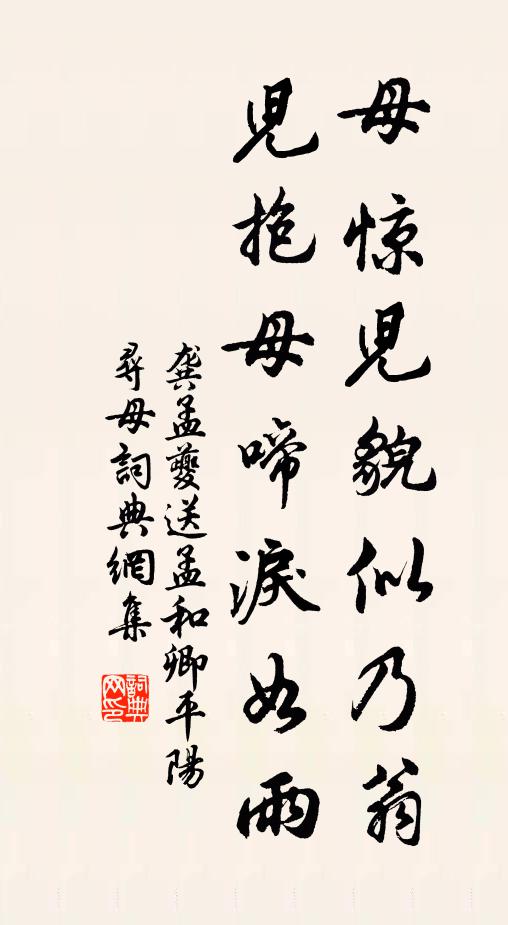 母惊児貌似乃翁
児抱母啼淚如雨
龚孟夔送孟和卿平陽
尋母詞典網集
詞典网印